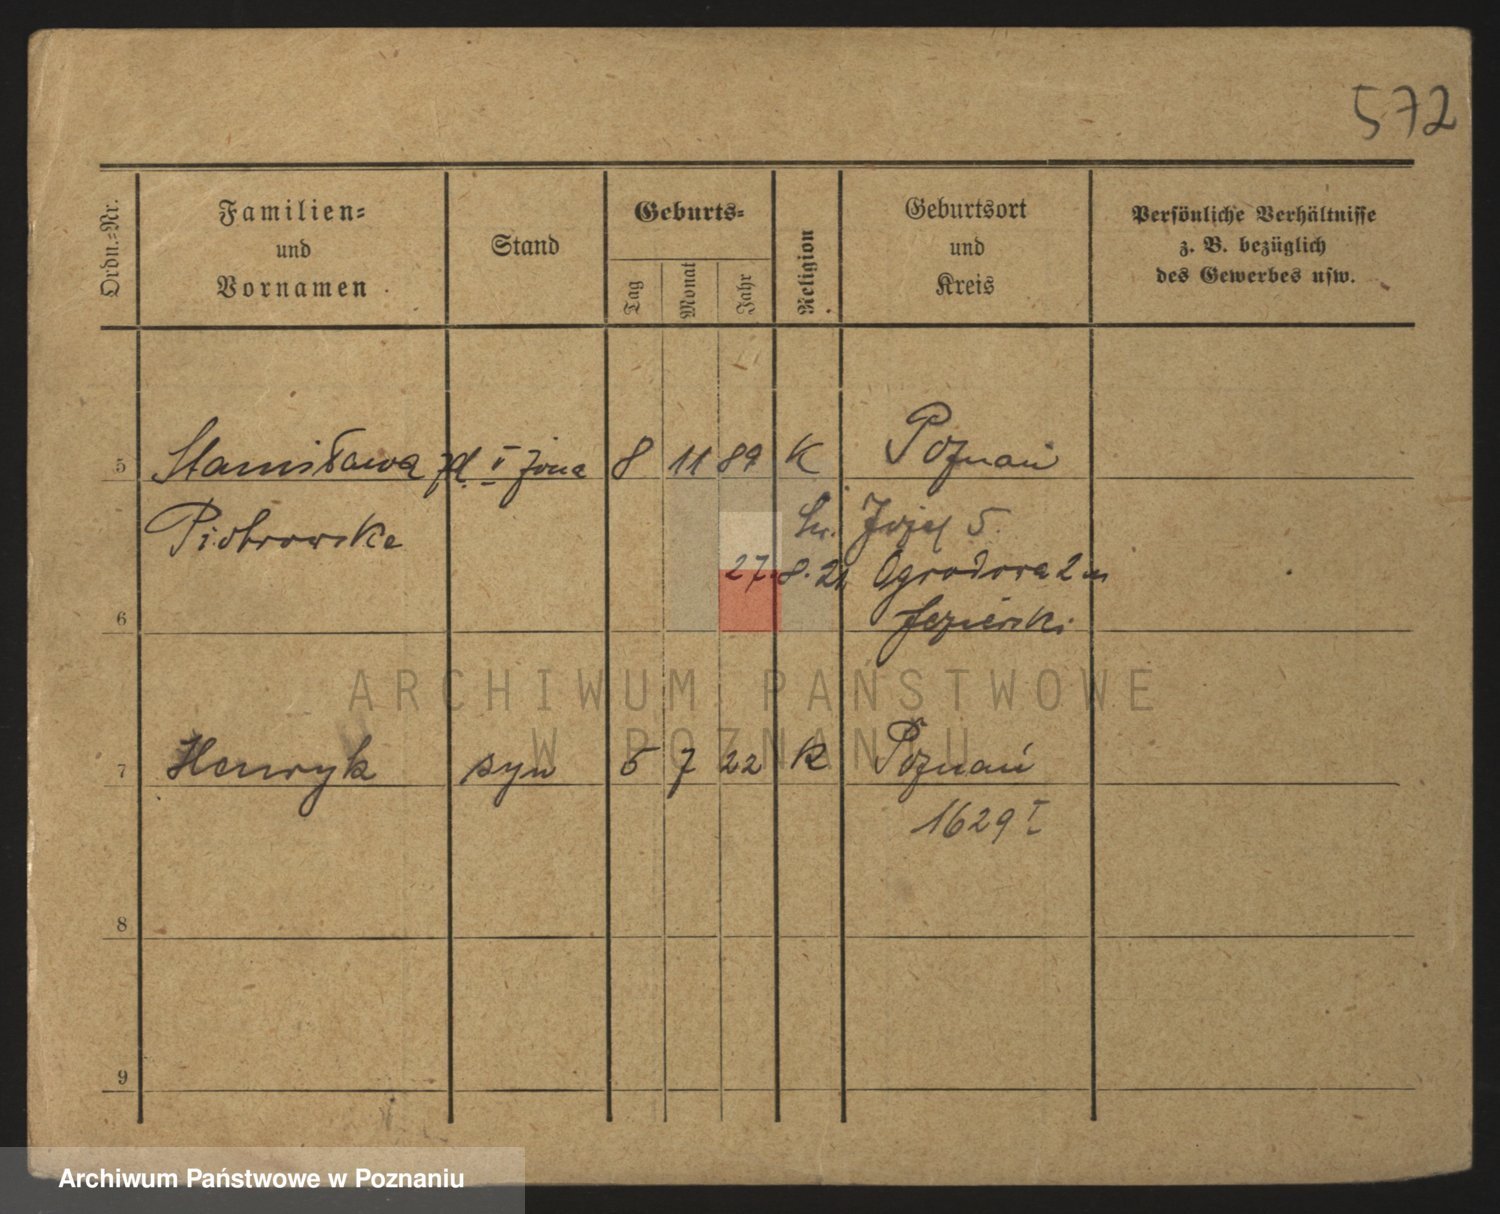 572
Ordn.-Nr.
Familien-
und
Vornamen
Stand
Geburts-
Tag
Monat
Jahr
Religion
Geburtsort
und
Kreis
Persönliche Verhältnisse
z. B. bezüglich
des Gewerbes usw.
5 Stanisława żona 8 11 89 K Poznań
Piotrowska
Józef 5.
27.8.21 Ogrodowa 2
6 Jezierski
ARCHIWUM PAŃSTWOWE
W POZNANIU
7 Henryk syn 5 7 22 K Poznań
1629 I
8
9
Archiwum Państwowe w Poznaniu